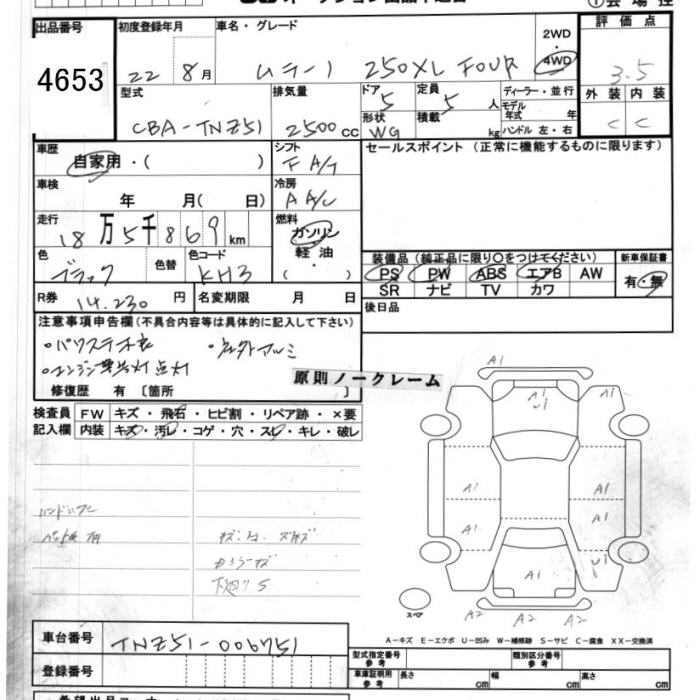 オークション出品申込書
出品番号
4653
初度登録年月
22 8月
車名・グレード
ムラーノ 250XL FOUR
2WD
4WD
評価点
3.5
外装 内装
C C
型式
CBA-TNZ51
排気量
2500cc
ドア 5
形状 WG
定員 5人
積載 kg
ディーラー・並行
モデル年式 年
ハンドル 左・右
車歴
自家用・( )
シフト
F A/T
セールスポイント (正常に機能するものに限ります)
車検
年 月( 日)
冷房
A A/C
走行
18万5千869km
燃料
ガソリン
軽油・
( )
色
ブラック
色替
色コード
KH3
装備品 (純正品に限り○をつけてください)
PS PW ABS エアB AW
SR ナビ TV カワ
新車保証書
有・無
R券 14,230円
名変期限 月 日
後日品
注意事項申告欄 (不具合内容等は具体的に記入して下さい)
・エンジン警告灯点灯
・社外アルミ
修復歴 有 〔箇所 〕
原則ノークレーム
検査員記入欄
FW キズ・飛石・ヒビ割・リペア跡・×要
内装 キズ・汚レ・コゲ・穴・スレ・キレ・破レ
下廻りS
A1
A1
U1
A1
A1
A1
A1
A1
A1
U1
A1
スペア
A2
A2
A2
A-キズ E-エクボ U-凹み W-補修跡 S-サビ C-腐食 XX-交換済
車台番号
TNZ51-006751
登録番号
型式指定番号 参考
類別区分番号 参考
車庫証明用 参考
長さ cm
幅 cm
高さ cm